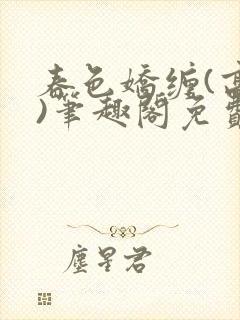 春色娇缠(高
)筆趣閣免費
塵星君